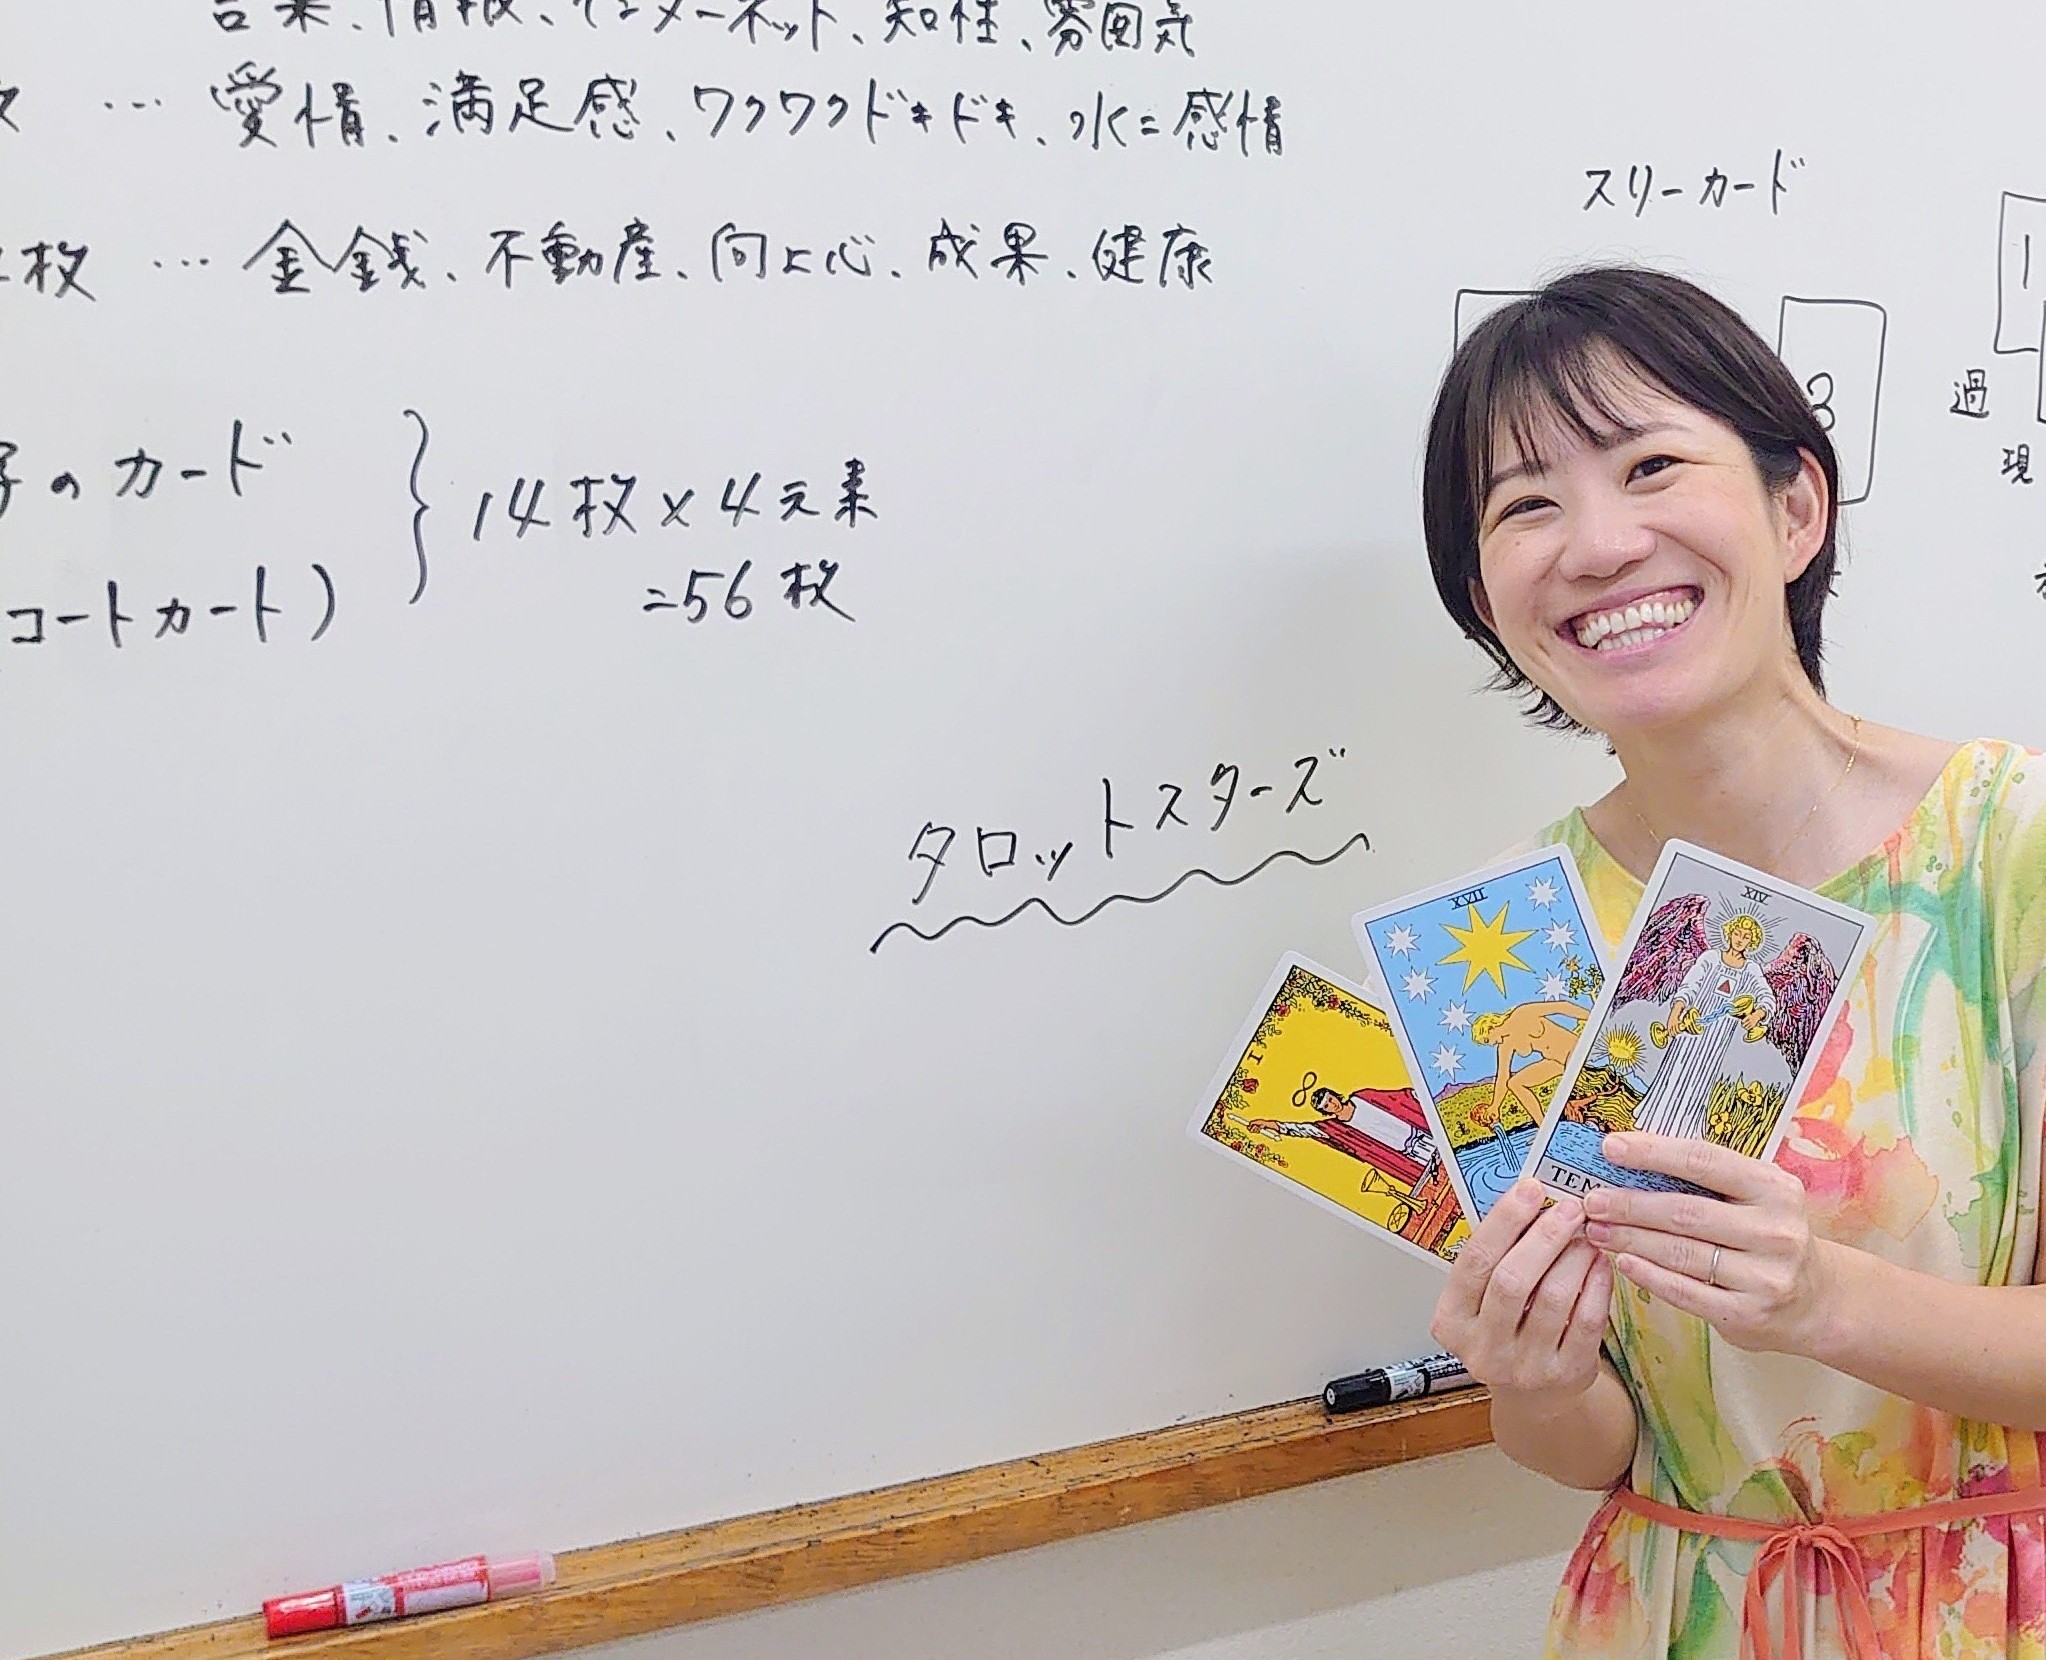 言葉、情報、インターネット、知性、雰囲気
… 愛情、満足感、ワクワクドキドキ、水=感情
枚 … 金銭、不動産、向上心、成果、健康
のカード
コートカード)
14枚×4元素
=56枚
タロットスターズ
スリーカード
3
1
過
現
I
XVII
XIV
TEM